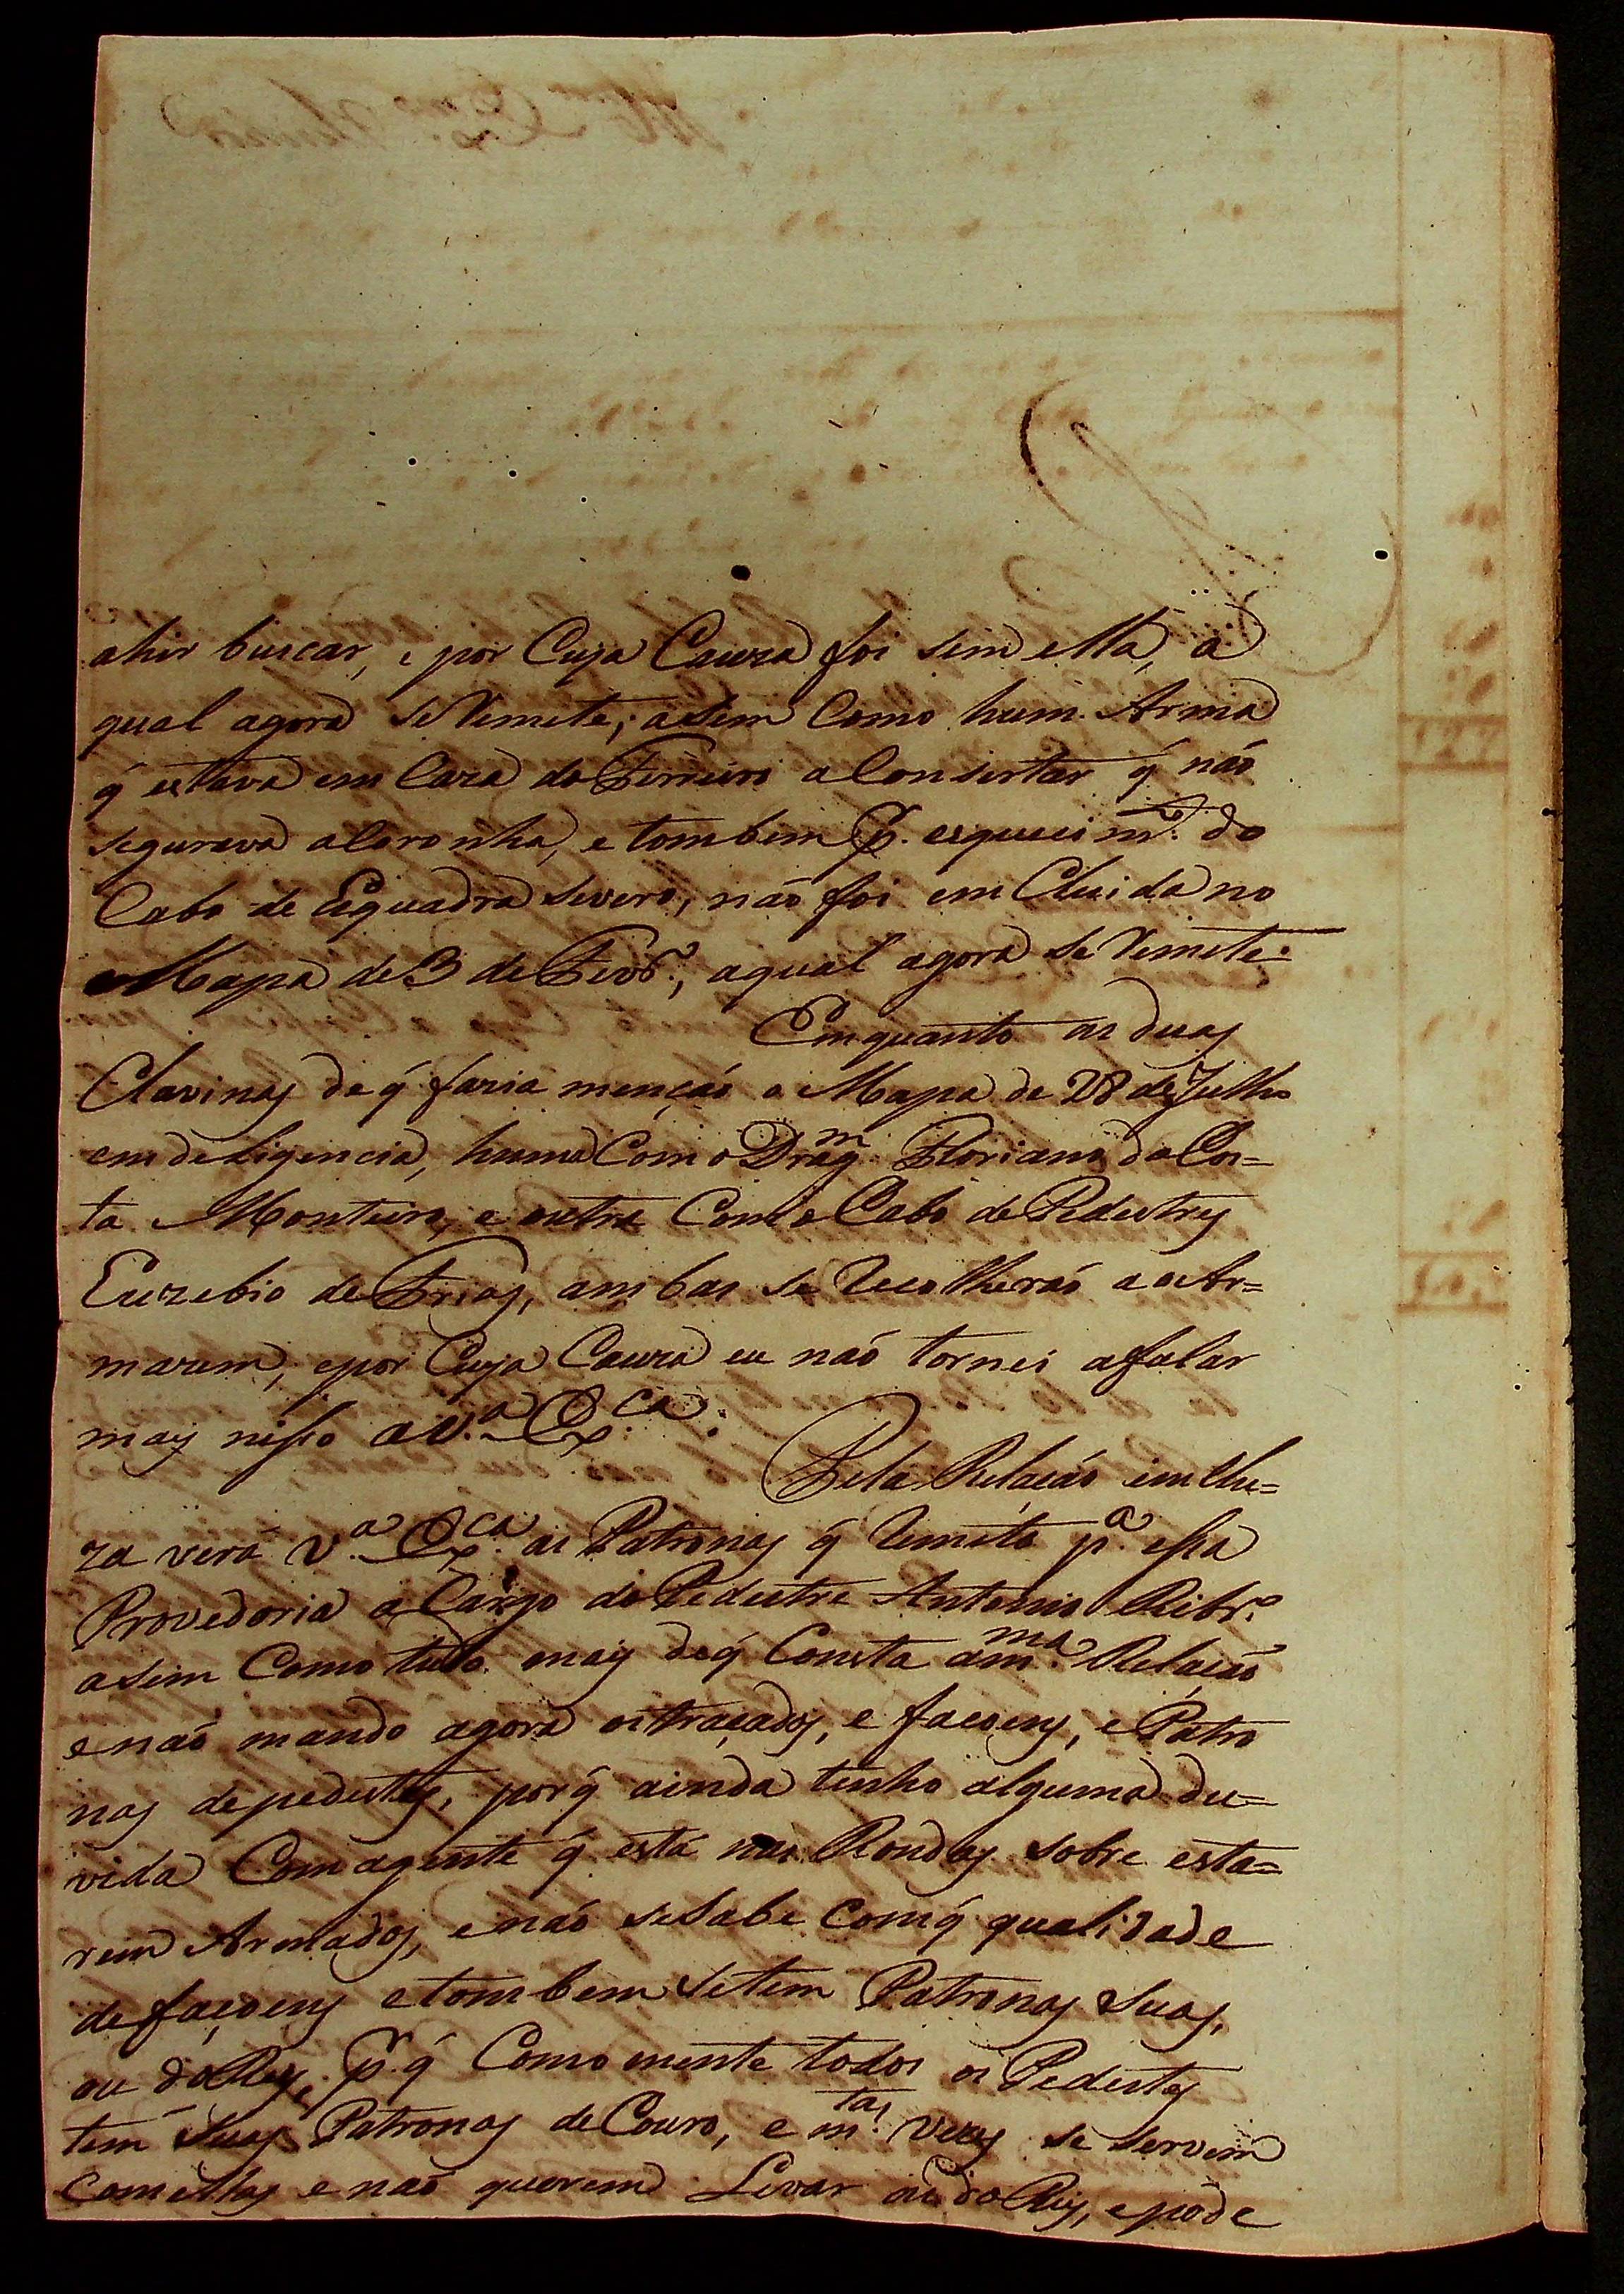 ahir buscar, e por Cuja Cauza foi sem ella, a
qual agora se Remete; asim Como hum. Arma
q̃ estava em Caza do Ferreiro a Consertar q̃ não
segurava a Coronha, e tombem p. esqueeim.to do
Cabo de Esquadra Severo, não foi em Cluida no
Mapa de 3 de Fevr.o, aqual agora se Remete.
Emquanto as duas
Clavinas de q̃ faria menção o Mapa de 28 de Julho
em deligencia, huma Com o Drag.m Floriano da Cos=
ta Monteiro, e outra Com o Cabo de Pedestres
Euzebio de Frias, ambas se Recolherão ao Ar=
mazem, e por Cuja Cauza eu não tornei a falar
mais nisso a V.a Ex.ca.
Pela Relação imClu=
za verá V.a Ex.ca as Patronas q̃ Remeto p.a essa
Provedoria a Cargo do Pedestre Antonio Ribr.o
asim Como tudo mais de q̃ Consta a m.ma Relação
e não mando agora os traçados, e facoens, e Patro
nas de pedestes, por q̃ ainda tenho alguma du=
vida Com agente q̃ está nas Rondas sobre esta=
rem Armados, e não se Sabe Com q̃ qualidade
de facoens e tombem se tem Patronas Suas,
ou do Rey, p.r q̃ Como mente todos os Pedestes
tem Suas Patronas de Couro, e m.tas vezes se servem
Com ellas e não querem Levar as do Rey, e pode